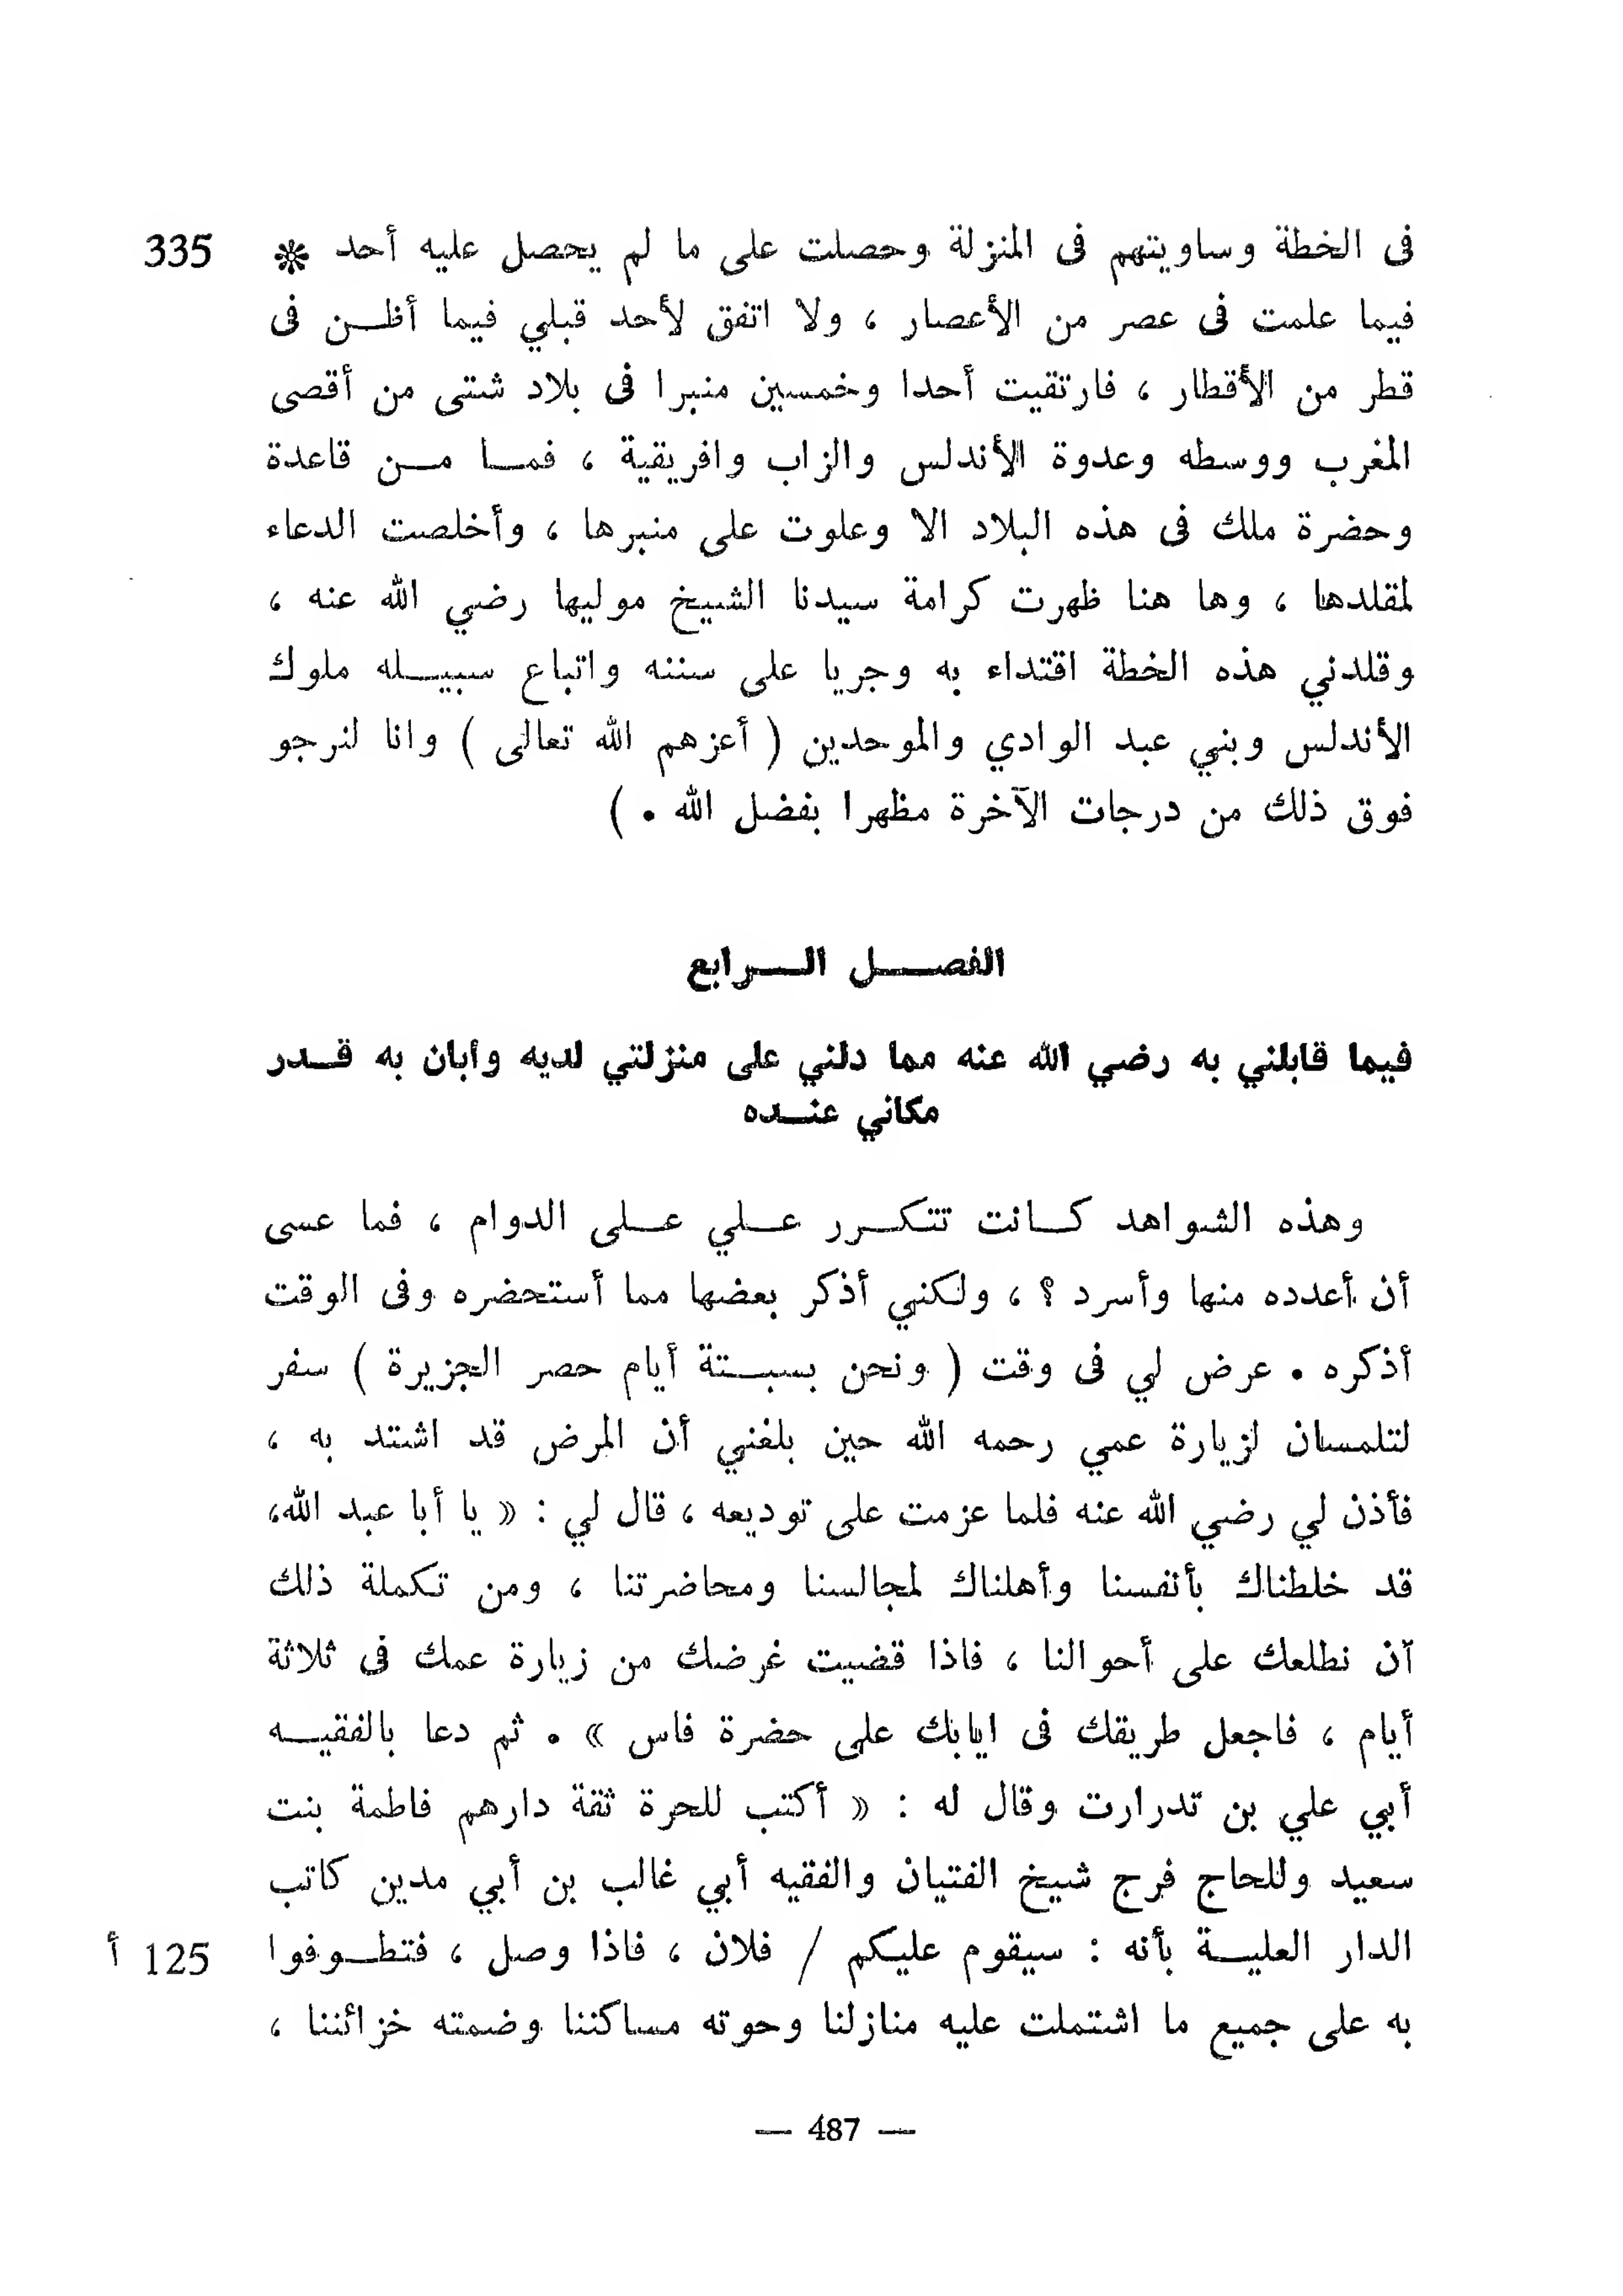 فى الخطة وساويتهم فى المنزلة وحصلت على ما لم يحصل عليه أحد * 335
فيما علمت فى عصر من الأعصار ، ولا اتفق لأحد قبلي فيما أظن فى
قطر من الأقطار ، فارتقيت أحدا وخمسين منبرا فى بلاد شتى من أقصى
المغرب ووسطه وعدوة الأندلس والزاب وافريقية ، فما من قاعدة
وحضرة ملك فى هذه البلاد الا وعلوت على منبرها ، وأخلصت الدعاء
لمقلدها ، وها هنا ظهرت كرامة سيدنا الشيخ موليها رضي الله عنه ،
وقلدني هذه الخطة اقتداء به وجريا على سننه واتباع سبيله ملوك
الأندلس وبني عبد الوادي والموحدين ( أعزهم الله تعالى ) وانا لنرجو
فوق ذلك من درجات الآخرة مظهرا بفضل الله . )
الفصل الرابع
فيما قابلني به رضي الله عنه مما دلني على منزلتي لديه وأبان به قدر
مكاني عنده
وهذه الشواهد كانت تتكرر علي على الدوام ، فما عسى
أن أعدده منها وأسرد ؟ ، ولكني أذكر بعضها مما أستحضره وفى الوقت
أذكره . عرض لي فى وقت ( ونحن بسبتة أيام حصر الجزيرة ) سفر
لتلمسان لزيارة عمي رحمه الله حين بلغني أن المرض قد اشتد به ،
فأذن لي رضي الله عنه فلما عزمت على توديعه ، قال لي : « يا أبا عبد الله،
قد خلطناك بأنفسنا وأهلناك لمجالسنا ومحاضرتنا ، ومن تكملة ذلك
آن نطلعك على أحوالنا ، فاذا قضيت غرضك من زيارة عمك فى ثلاثة
أيام ، فاجعل طريقك فى ايابك على حضرة فاس » . ثم دعا بالفقيه
أبي علي بن تدرارت وقال له : « أكتب للحرة ثقة دارهم فاطمة بنت
سعيد وللحاج فرج شيخ الفتيان والفقيه أبي غالب بن أبي مدين كاتب
الدار العلية بأنه : سيقوم عليكم / فلان ، فاذا وصل ، فتطوفوا 125 أ
به على جميع ما اشتملت عليه منازلنا وحوته مساكننا وضمته خزائننا ،
— 487 —